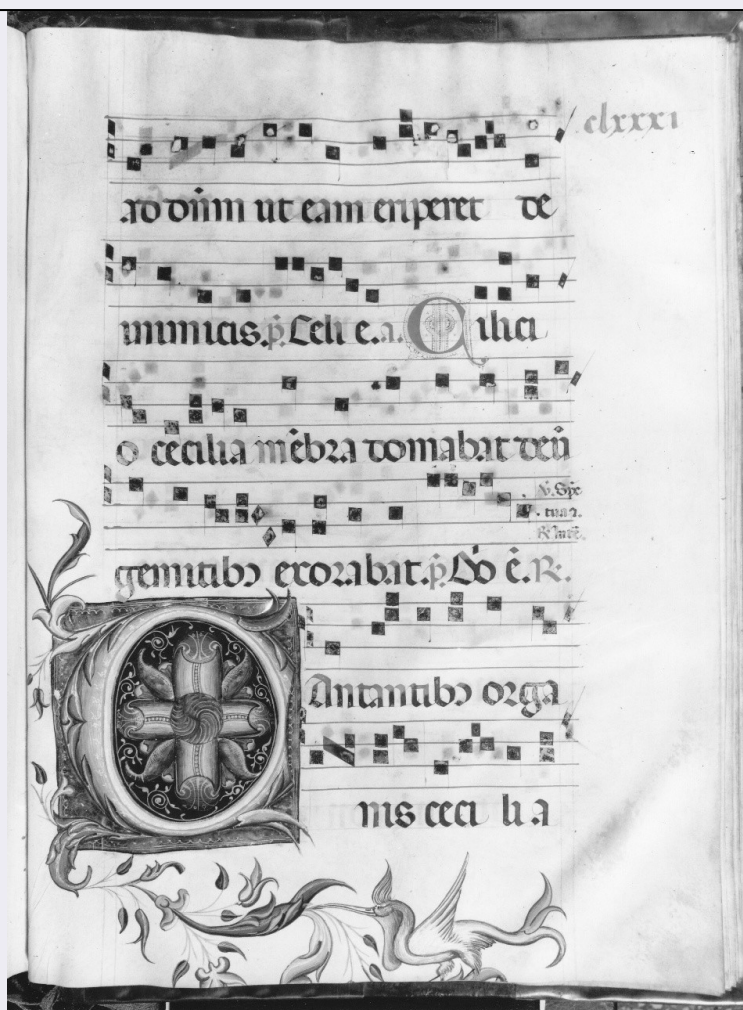 clxxxi
ad dnm ut eam eriperet de
inimicis. p̄. Celi e. a. Cilici
o cecilia mēbra domabat deū
v. Spe
gemitibꝫ exorabat. p̄. Dō ē. R.
Cantantibꝫ orga
nis ceci li a